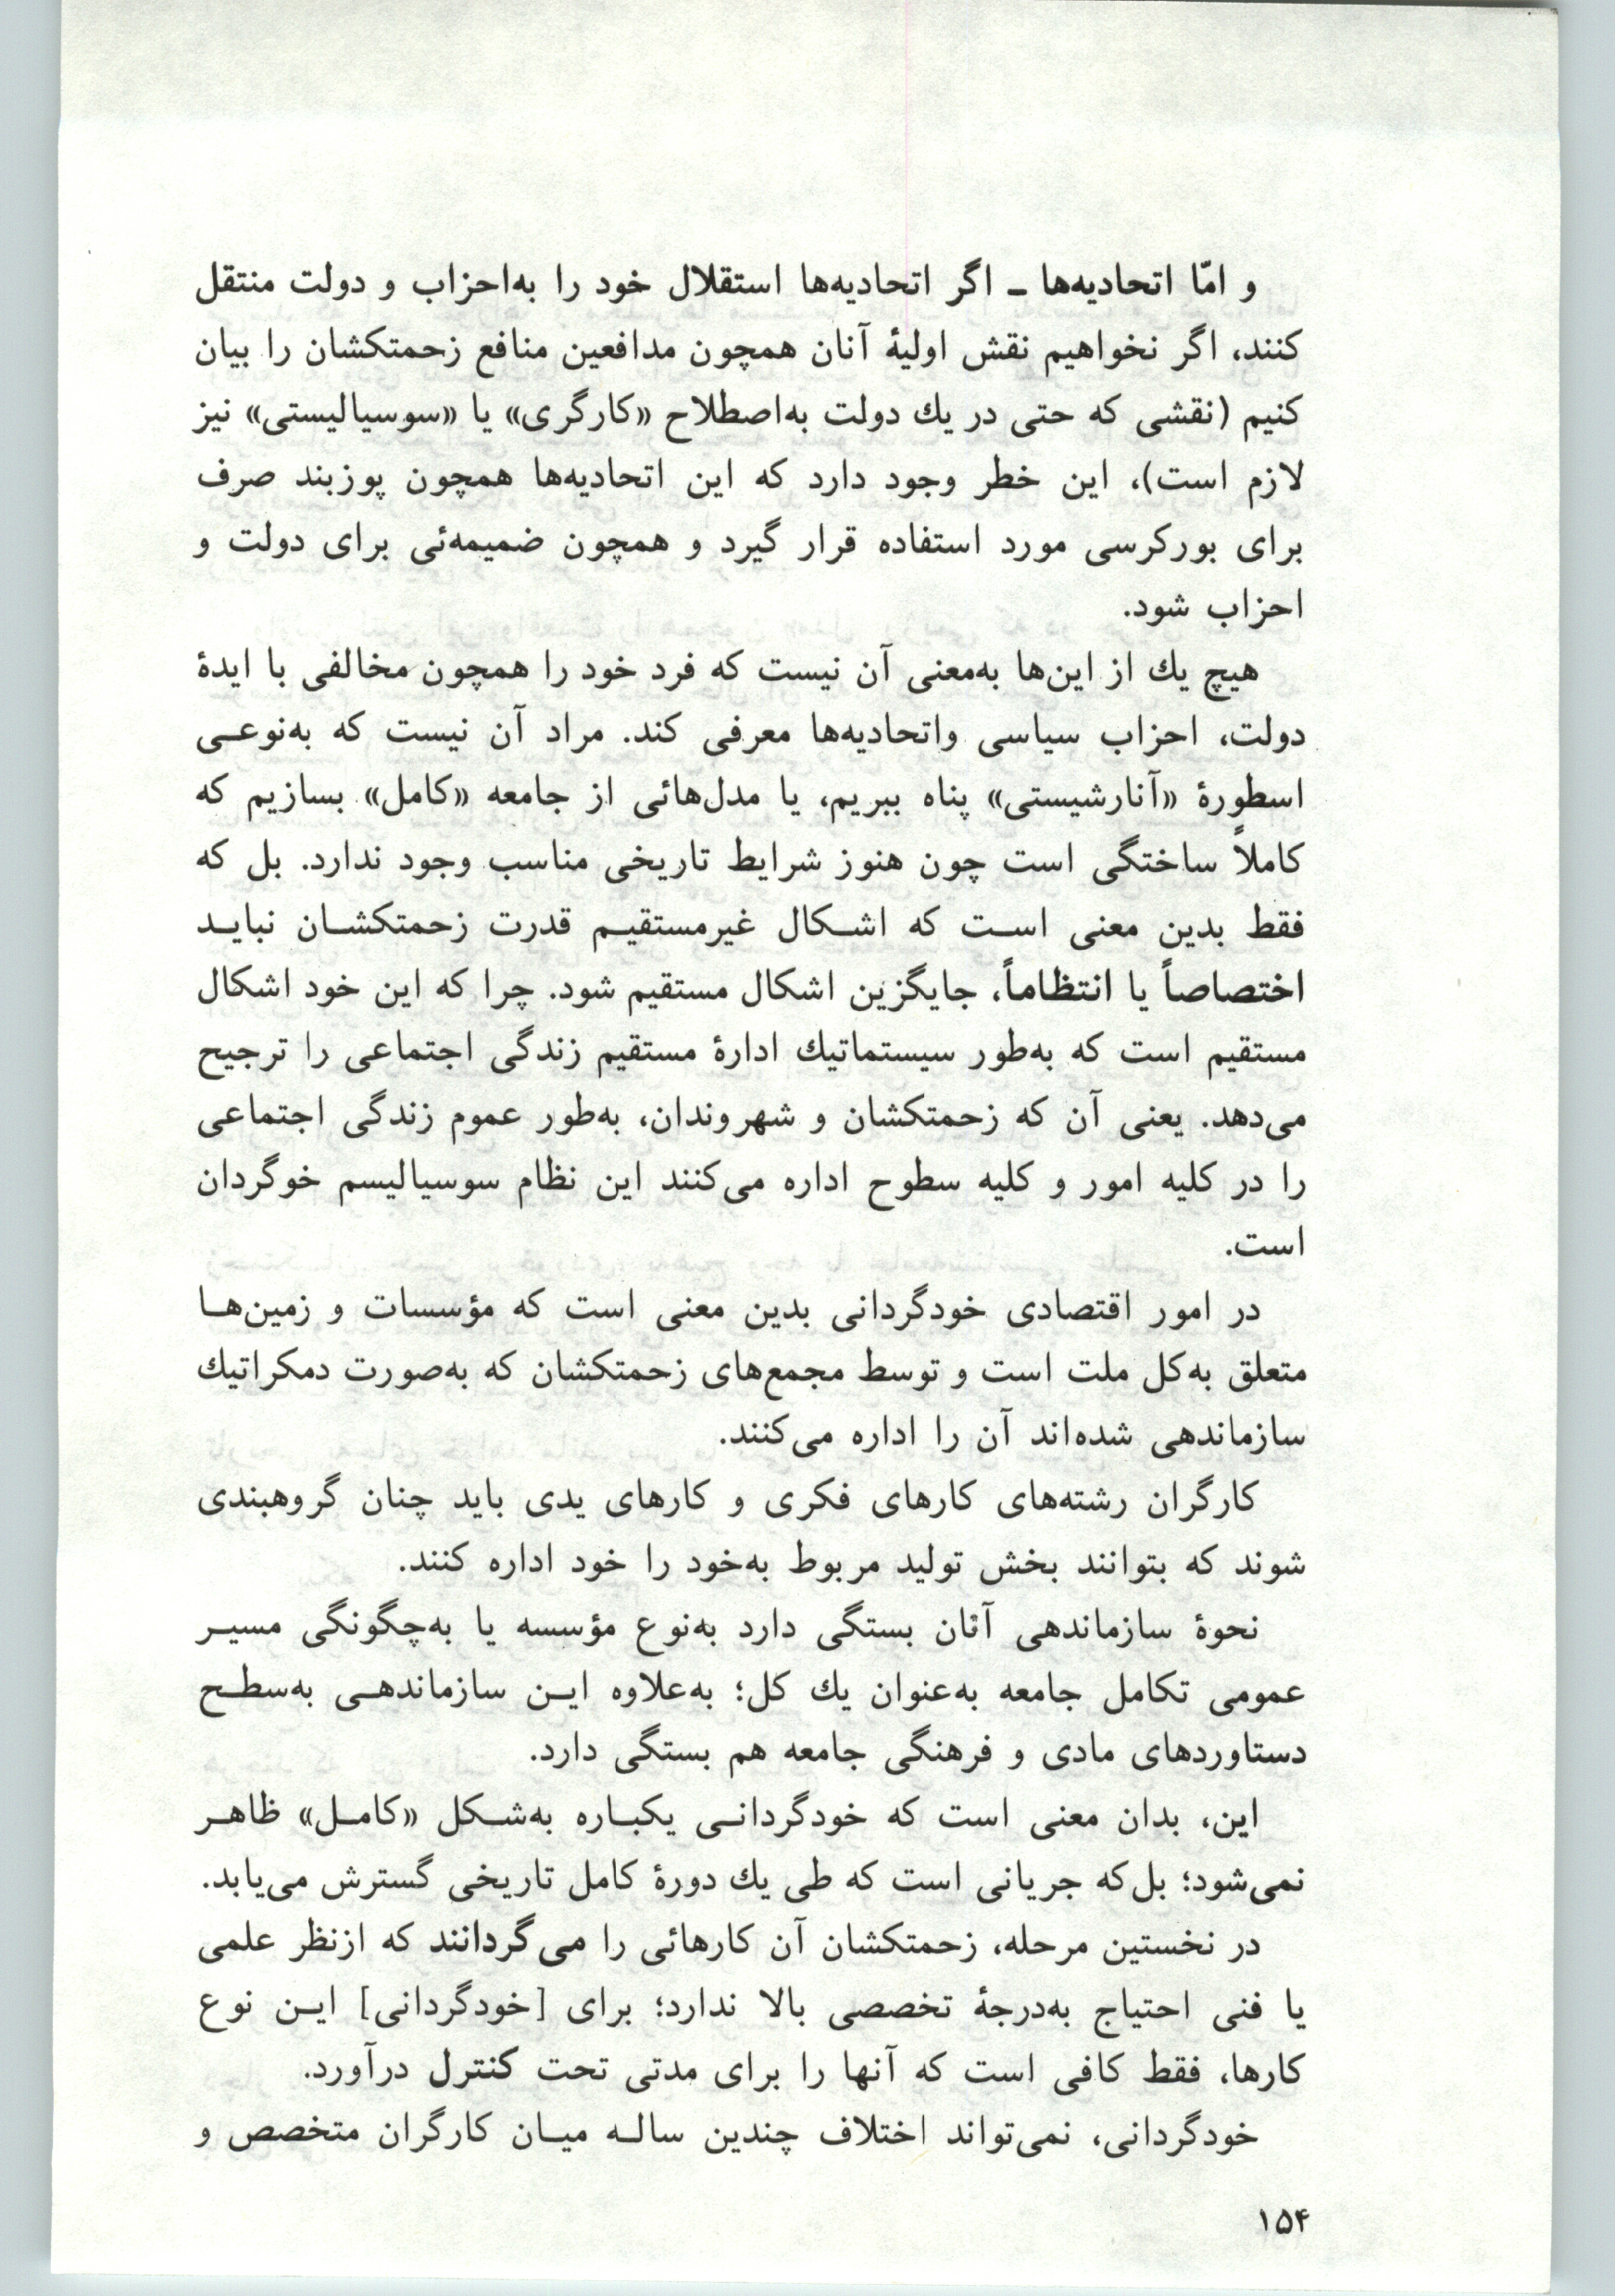 و امّا اتحادیه‌ها ـ اگر اتحادیه‌ها استقلال خود را به‌احزاب و دولت منتقل
کنند، اگر نخواهیم نقش اولیهٔ آنان همچون مدافعین منافع زحمتکشان را بیان
کنیم (نقشی که حتی در یك دولت به‌اصطلاح «کارگری» یا «سوسیالیستی» نیز
لازم است)، این خطر وجود دارد که این اتحادیه‌ها همچون پوزبند صرف
برای بورکرسی مورد استفاده قرار گیرد و همچون ضمیمه‌ئی برای دولت و
احزاب شود.
هیچ یك از این‌ها به‌معنی آن نیست که فرد خود را همچون مخالفی با ایدهٔ
دولت، احزاب سیاسی واتحادیه‌ها معرفی کند. مراد آن نیست که به‌نوعـی
اسطورهٔ «آنارشیستی» پناه ببریم، یا مدل‌هائی از جامعه «کامل» بسازیم که
کاملاً ساختگی است چون هنوز شرایط تاریخی مناسب وجود ندارد. بل که
فقط بدین معنی اسـت که اشـکال غیرمستقیـم قدرت زحمتکشـان نبایـد
اختصاصاً یا انتظاماً، جایگزین اشکال مستقیم شود. چرا که این خود اشکال
مستقیم است که به‌طور سیستماتیك ادارهٔ مستقیم زندگی اجتماعی را ترجیح
می‌دهد. یعنی آن که زحمتکشان و شهروندان، به‌طور عموم زندگی اجتماعی
را در کلیه امور و کلیه سطوح اداره می‌کنند این نظام سوسیالیسم خوگردان
است.
در امور اقتصادی خودگردانی بدین معنی است که مؤسسات و زمین‌هـا
متعلق به‌کل ملت است و توسط مجمع‌های زحمتکشان که به‌صورت دمکراتیك
سازماندهی شده‌اند آن را اداره می‌کنند.
کارگران رشته‌های کارهای فکری و کارهای یدی باید چنان گروهبندی
شوند که بتوانند بخش تولید مربوط به‌خود را خود اداره کنند.
نحوهٔ سازماندهی آنان بستگی دارد به‌نوع مؤسسه یا به‌چگونگی مسیـر
عمومی تکامل جامعه به‌عنوان یك کل؛ به‌علاوه ایـن سازماندهـی به‌سطـح
دستاوردهای مادی و فرهنگی جامعه هم بستگی دارد.
این، بدان معنی است که خودگردانـی یکبـاره به‌شـکل «کامـل» ظاهـر
نمی‌شود؛ بل‌که جریانی است که طی یك دورهٔ کامل تاریخی گسترش می‌یابد.
در نخستین مرحله، زحمتکشان آن کارهائی را می‌گردانند که ازنظر علمی
یا فنی احتیاج به‌درجهٔ تخصصی بالا ندارد؛ برای [خودگردانی] ایـن نوع
کارها، فقط کافی است که آنها را برای مدتی تحت کنترل درآورد.
خودگردانی، نمی‌تواند اختلاف چندین سالـه میـان کارگران متخصص و
۱۵۴